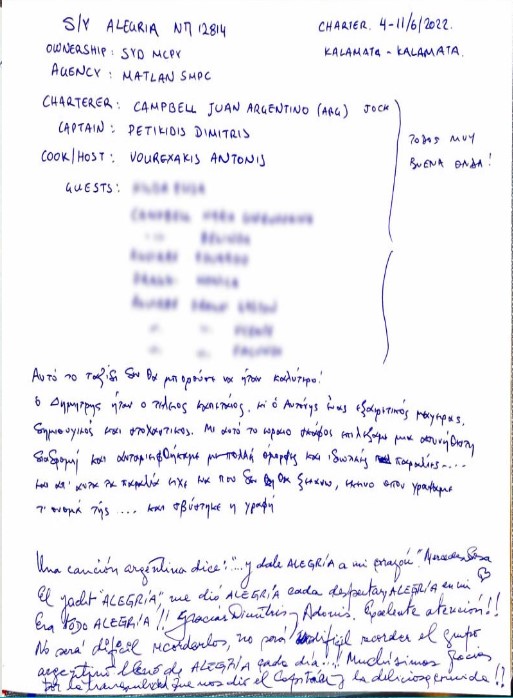 S/Y ALEGRIA ΝΠ 12814
CHARTER. 4-11/6/2022.
KALAMATA - KALAMATA.
OWNERSHIP: SYD MCPY
AGENCY: MATLAN SMPC
CHARTERER: CAMPBELL JUAN ARGENTINO (ARG) JOCK
CAPTAIN: PETIKIDIS DIMITRIS
COOK/HOST: VOUREXAKIS ANTONIS
TODOS MUY
BUENA ONDA!
GUESTS:
Αυτό το ταξίδι δεν θα μπορούσε να ήταν καλύτερο!
Ο Δημήτρης ήταν ο τέλειος καπετάνιος, κι ο Αντώνης ένας εξαιρετικός μάγειρας.
δημιουργικός και στοχαστικός. Με αυτό το ωραίο σκάφος επιλέξαμε μια ασυνήθιστη
διαδρομή και ανταμειφθήκαμε με πολλή όμορφες και ιδιωτικές παραλίες....
που δεν θα ξεχάσω, εκείνο όπου γράψαμε
τ' όνομά της .... και σβύστηκε η γραφή
Una canción argentina dice: "...y dale ALEGRÍA a mi corazón" Mercedes Sosa
El yacht "ALEGRÍA" me dió ALEGRÍA cada despertar, ALEGRÍA en mi
Era TODO ALEGRÍA!! Gracias Dimitris y Adonis. Excelente atención!!
No será difícil recordarlos, no será difícil recordar el grupo
argentino lleno de ALEGRÍA cada día...! Muchísimas gracias
por la tranquilidad que nos dió el Capitán y la deliciosa comida!!